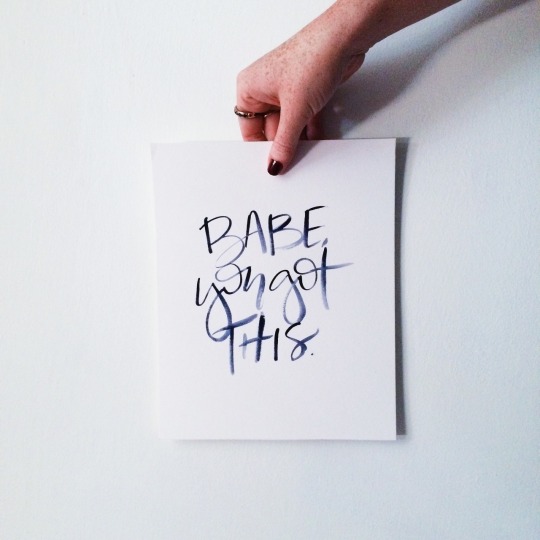 BABE,
you got
THIS.